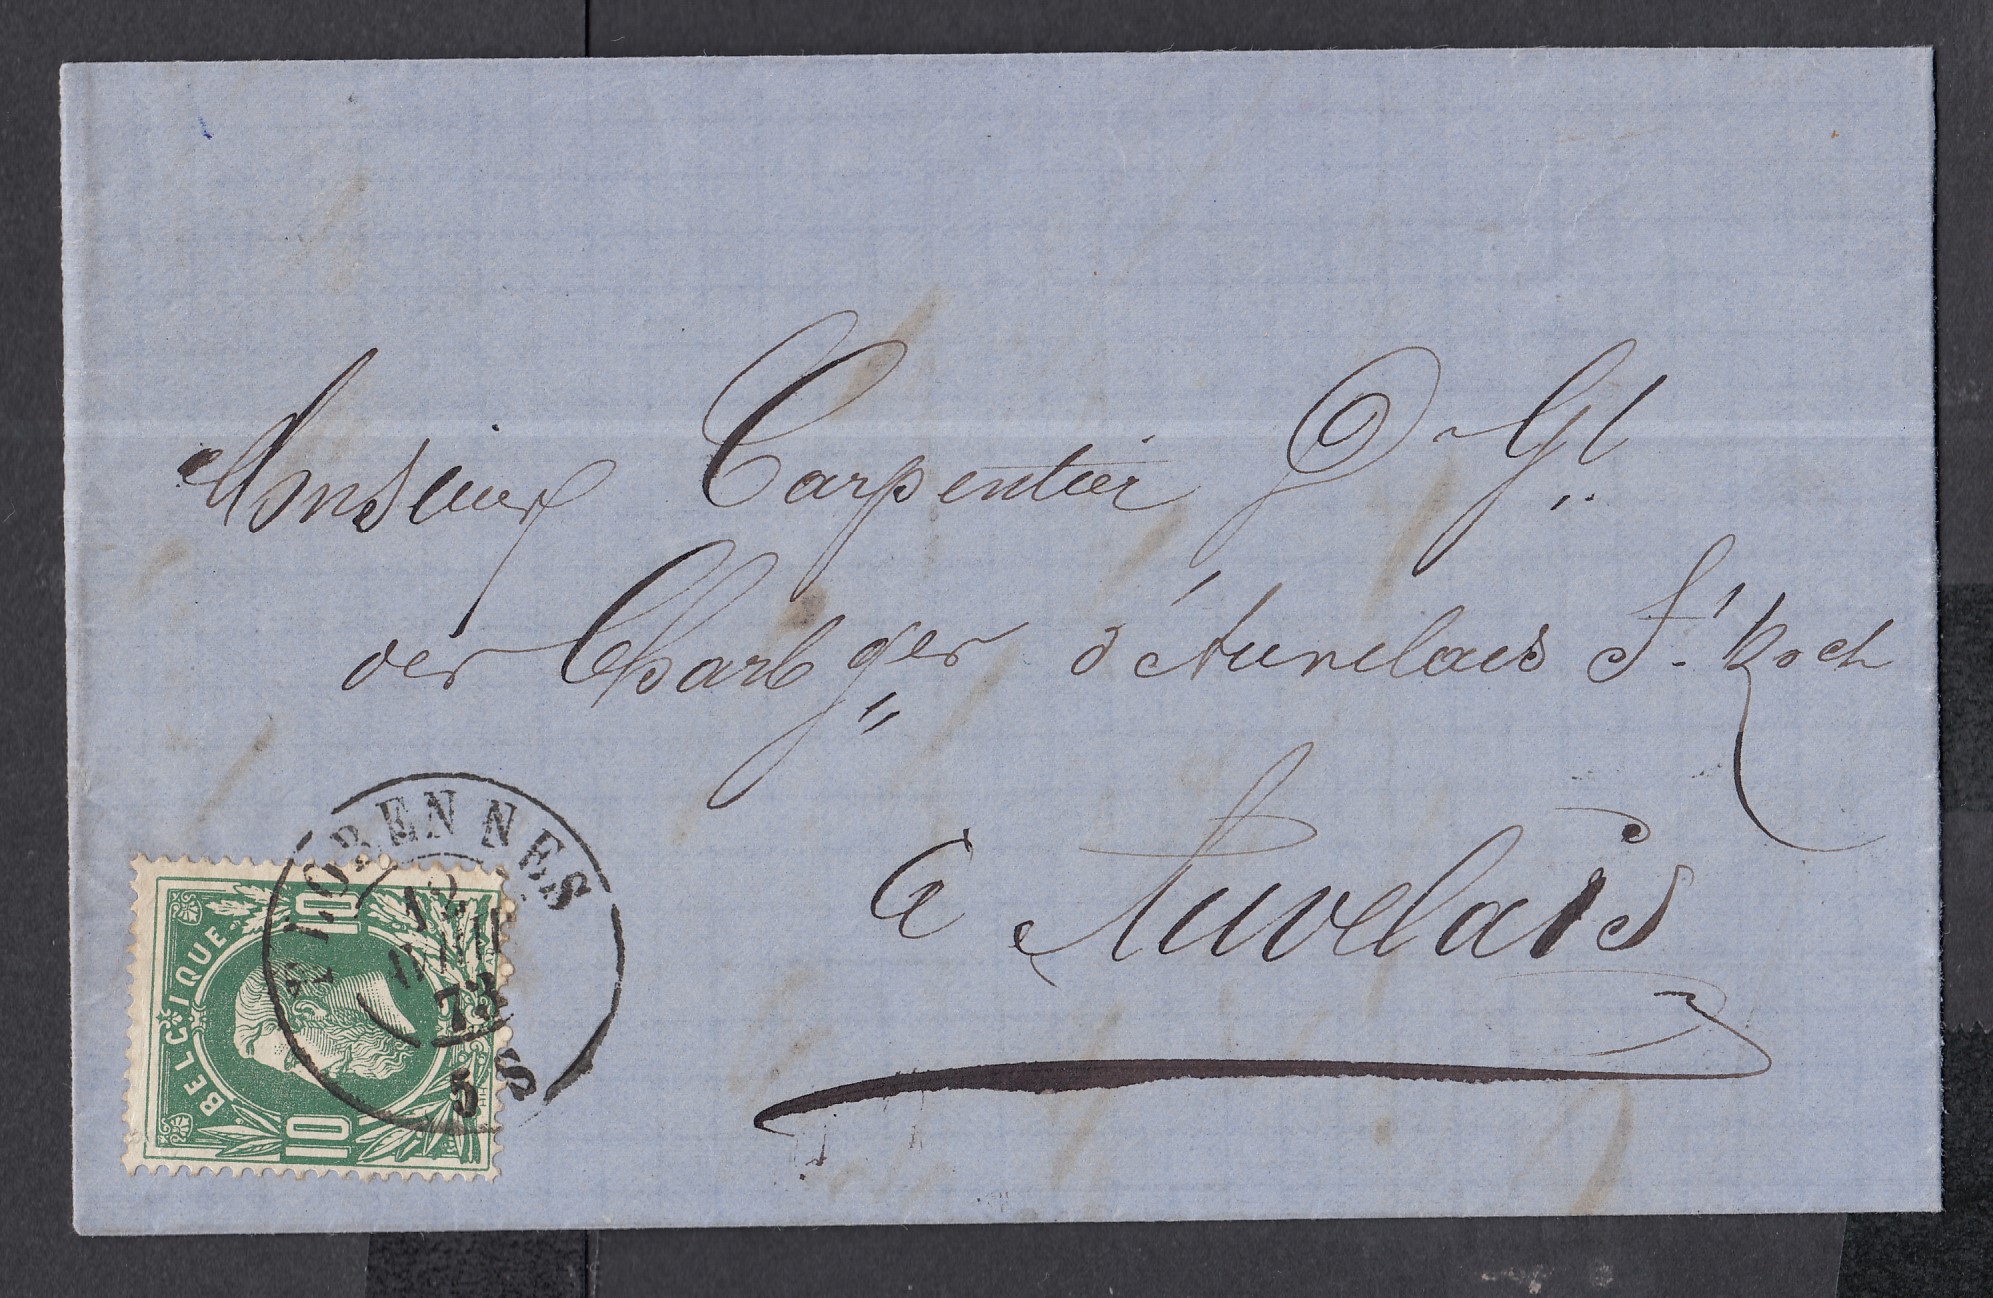 Monsieur Carpentier D. Gt.
des Charbger d'Auvelais St. Roch
à Auvelais
FLORENNES
12
JUIN
73
5 S
BELGIQUE
10 10